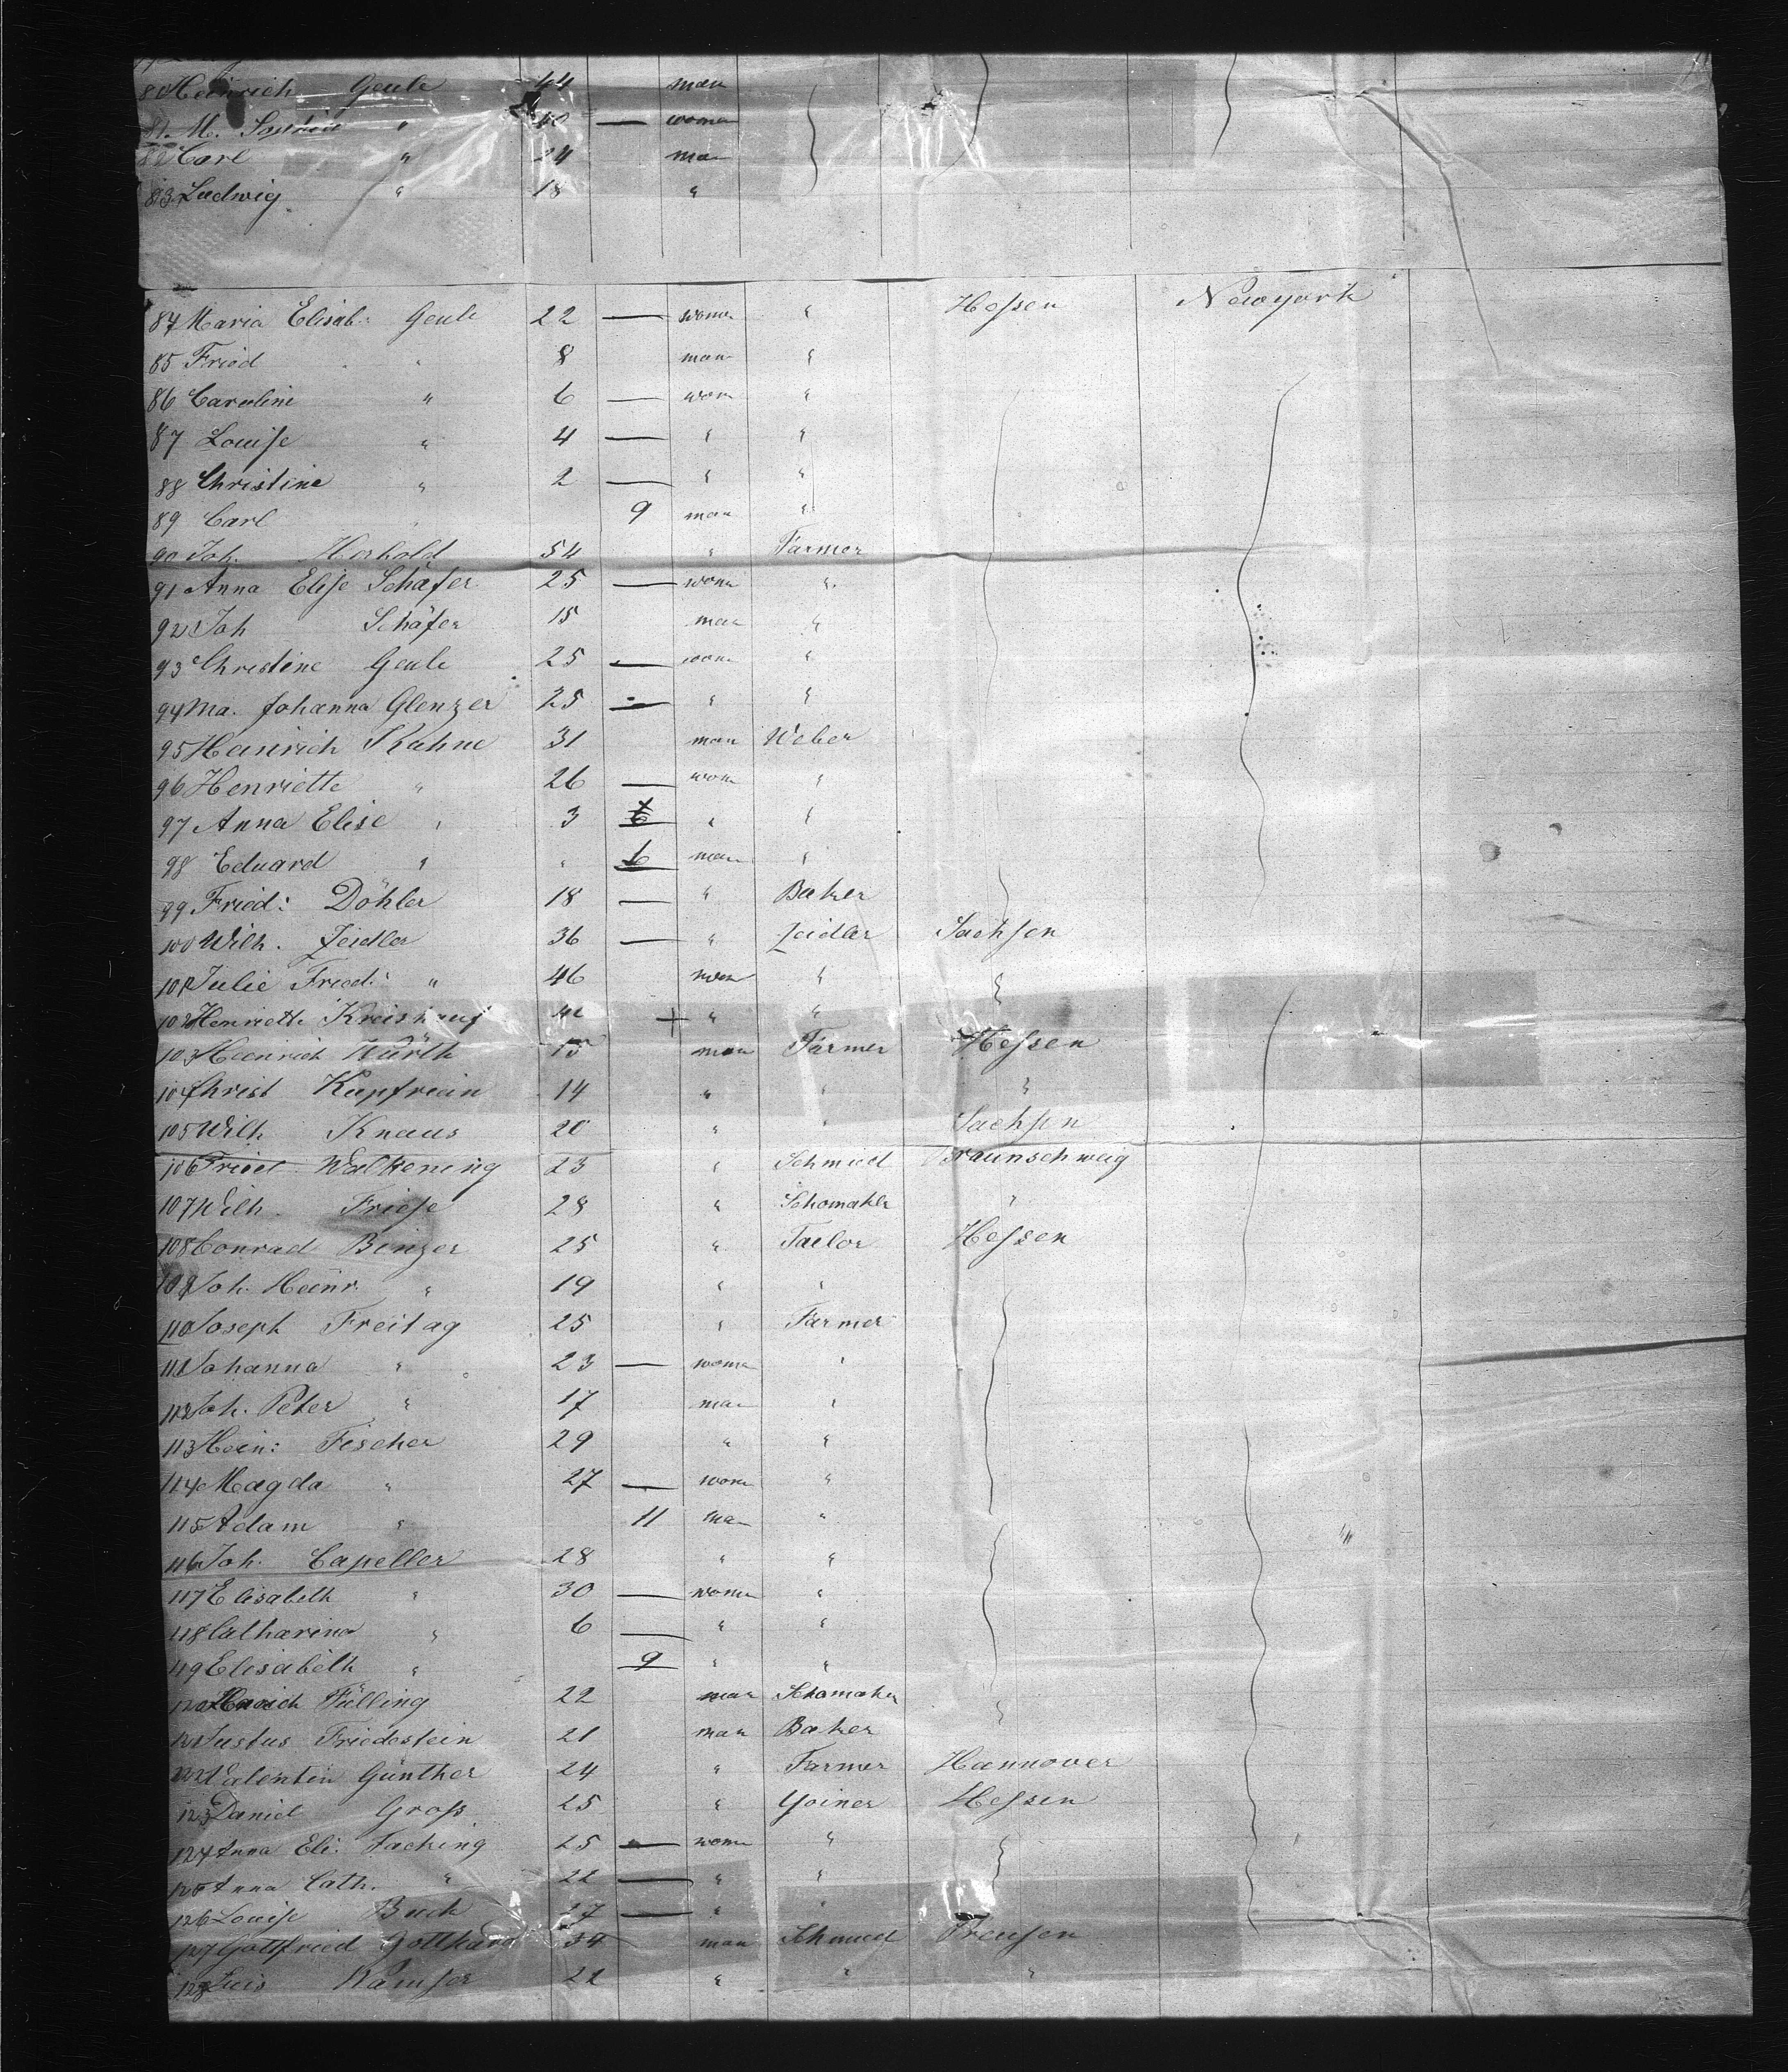 80 Heinrich Geule 44 man
81. M. Sophie " 40 — woman
82 Carl " 24 man
83. Ludwig " 18 "
84 Maria Elisab: Geule 22 — woma " Hessen Newyork
85 Fried " 8 man "
86 Caroline " 6 — wom "
87 Louise " 4 — " "
88 Christine " 2 — " "
89 Carl " 9 man "
90 Joh. Herhold 54 " Farmer
91 Anna Elise Schäfer 25 — woma "
92 Joh Schäfer 15 man "
93 Christine Geule 25 — woma "
94 Ma. Johanna Glenzer 25 — " "
95 Heinrich Kuhne 31 man Weber
96 Henriette " 26 — wom "
97 Anna Elise " 3 " "
98 Eduard " " 6 man "
99 Fried: Döhler 18 — " Baker
100 Wilh. Zeidler 36 — " Zeidler Sachsen
101 Julie Fried: " 46 "
102 Henriette + " "
103 Heinrich Kürth 15 man Farmer Hessen
104 Christ Kupfrian 14 " " "
105 Wilh Knaus 20 " " Sachsen
106 Fried. Walkening 23 " Schmied Braunschweig
107 Wilh. Friese 28 " Schomaker "
108 Conrad Binzer 25 " Taelor Hessen
109 Joh. Heinr. " 19 " "
110 Joseph Freitag 25 " Farmer
111 Johanna " 23 — woma "
112 Joh. Peter " 17 man "
113 Hein: Fischer 29 " "
114 Magda " 27 — woma "
115 Adam " 11 man "
116 Joh. Capeller 28 " "
117 Elisabeth " 30 — woma "
118 Catharina " 6 — " "
119 Elisabeth " 9 " "
120 Fülling 22 man Schomaker
121 Justus Friedestein 21 man Baker
122 Valentin Günther 24 " Farmer Hannover
123 Daniel Gross 25 " Yoiner Hessen
124 Anna Eli: Facking 25 — woma "
125 Anna Cath. " 22 — " "
126 Louise Buch 27 — " "
127 Gottfried Gotthard 34 man Schmied Preusen
128 Luis Kamser 22 " " "